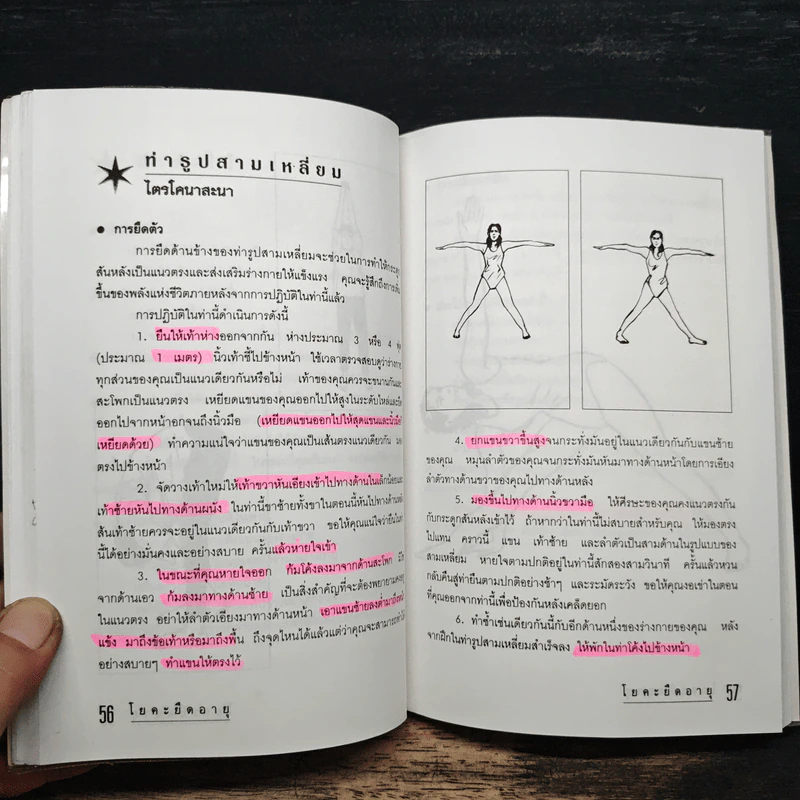 ท่ารูปสามเหลี่ยม
ไตรโคนาสะนา
● การยืดตัว
การยืดด้านข้างของท่ารูปสามเหลี่ยมจะช่วยในการทำให้กระดูก
สันหลังเป็นแนวตรงและส่งเสริมร่างกายให้แข็งแรง คุณจะรู้สึกถึงการ
ขึ้นของพลังแห่งชีวิตภายหลังจากการปฏิบัติในท่านี้แล้ว
การปฏิบัติในท่านี้ดำเนินการดังนี้
1. ยืนให้เท้าห่างออกจากกัน ห่างประมาณ 3 หรือ 4 ฟุต
(ประมาณ 1 เมตร) นิ้วเท้าชี้ไปข้างหน้า ใช้เวลาตรวจสอบดูว่าร่างกาย
ทุกส่วนของคุณเป็นแนวเดียวกันหรือไม่ เท้าของคุณควรจะขนานกันและ
สะโพกเป็นแนวตรง เหยียดแขนของคุณออกไปให้สูงในระดับไหล่และยืด
ออกไปจากหน้าอกจนถึงนิ้วมือ (เหยียดแขนออกไปให้สุดแขนและนิ้วมือ
เหยียดด้วย) ทำความแน่ใจว่าแขนของคุณเป็นเส้นตรงแนวเดียวกัน มอง
ตรงไปข้างหน้า
2. จัดวางเท้าใหม่ให้เท้าขวาหันเอียงเข้าไปทางด้านในเล็กน้อยและ
เท้าซ้ายหันไปทางด้านผนัง ในท่านี้ขาซ้ายทั้งขาในตอนนี้หันไปทางด้านผนัง
ส้นเท้าซ้ายควรจะอยู่ในแนวเดียวกันกับเท้าขวา ขอให้คุณแน่ใจว่ายืนใน
นี้ได้อย่างมั่นคงและอย่างสบาย ครั้นแล้วหายใจเข้า
3. ในขณะที่คุณหายใจออก ก้มโค้งลงมาจากด้านสะโพก มิใช่
จากด้านเอว ก้มลงมาทางด้านซ้าย เป็นสิ่งสำคัญที่จะต้องพยายามคงอยู่
ในแนวตรง อย่าให้ลำตัวเอียงมาทางด้านหน้า เอาแขนซ้ายลงต่ำมาถึงหน้า
แข้ง มาถึงข้อเท้าหรือมาถึงพื้น ถึงจุดไหนได้แล้วแต่ว่าคุณจะสามารถทำได้
อย่างสบายๆ ทำแขนให้ตรงไว้
56 โยคะยืดอายุ
4. ยกแขนขวาขึ้นสูงจนกระทั่งมันอยู่ในแนวเดียวกันกับแขนซ้าย
ของคุณ หมุนลำตัวของคุณจนกระทั่งมันหันมาทางด้านหน้าโดยการเอียง
ลำตัวทางด้านขวาของคุณไปทางด้านหลัง
5. มองขึ้นไปทางด้านนิ้วขวามือ ให้ศีรษะของคุณคงแนวตรงกัน
กับกระดูกสันหลังเข้าไว้ ถ้าหากว่าในท่านี้ไม่สบายสำหรับคุณ ให้มองตรง
ไปแทน คราวนี้ แขน เท้าซ้าย และลำตัวเป็นสามด้านในรูปแบบของ
สามเหลี่ยม หายใจตามปกติอยู่ในท่านี้สักสองสามวินาที ครั้นแล้วหวน
กลับคืนสู่ท่ายืนตามปกติอย่างช้าๆ และระมัดระวัง ขอให้คุณงอเข่าในตอน
ที่คุณออกจากท่านี้เพื่อป้องกันหลังเคล็ดยอก
6. ทำซ้ำเช่นเดียวกันนี้กับอีกด้านหนึ่งของร่างกายของคุณ หลัง
จากฝึกในท่ารูปสามเหลี่ยมสำเร็จลง ให้พักในท่าโค้งไปข้างหน้า
โยคะยืดอายุ 57